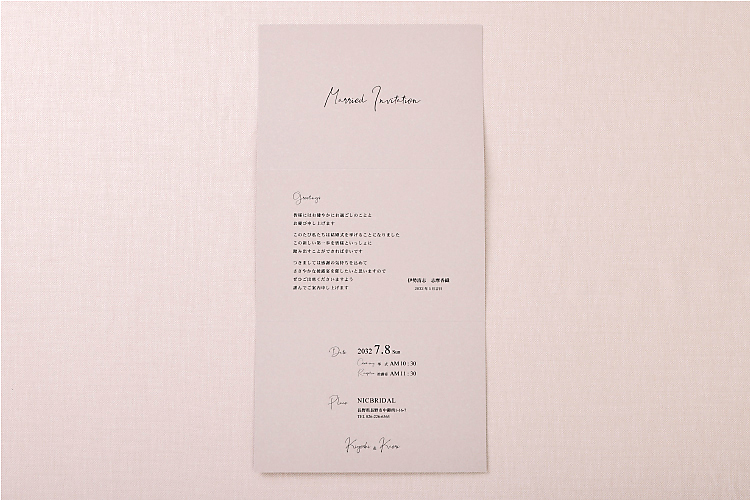 Married Invitation
Greetings
皆様にはお健やかにお過ごしのことと
お慶び申し上げます
このたび私たちは結婚式を挙げることになりました
この新しい第一歩を皆様といっしょに
踏み出すことができれば幸いです
つきましては感謝の気持ちを込めて
ささやかな披露宴を催したいと思いますので
ぜひご出席くださいますよう
謹んでご案内申し上げます
伊勢清志 志摩香織
2032年5月吉日
Date 2032 7.8 Sun
Ceremony 挙 式 AM 10 : 30
Reception 披露宴 AM 11 : 30
Place NICBRIDAL
長野県長野市中御所3-16-7
TEL 026-226-6363
Kiyoshi & Kaori